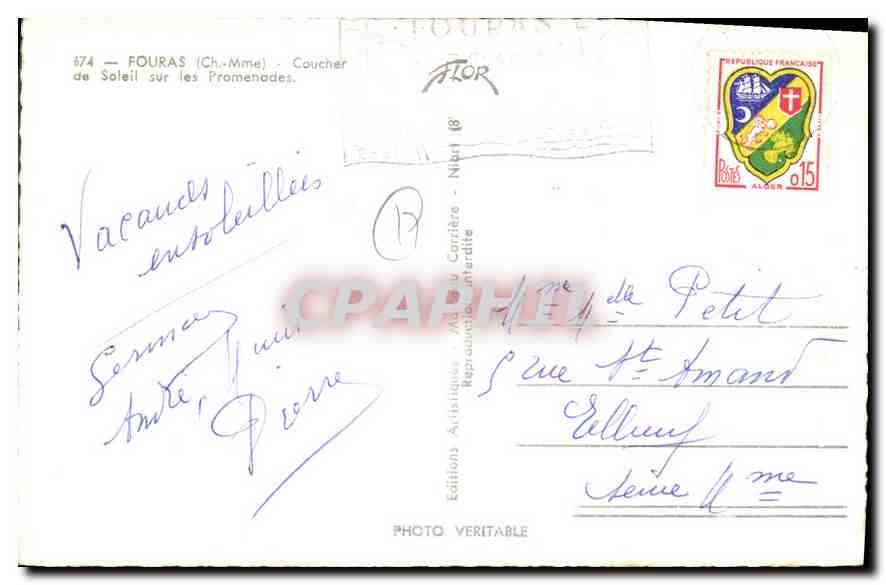 674 — FOURAS (Ch.-Mme) - Coucher
de Soleil sur les Promenades.
FLOR
FOURAS
REPUBLIQUE FRANÇAISE
POSTES
0,15
ALGER
Vacances
ensoleillées
Germaine
André,
Pierre
Editions Artistiques - Carrière - Niort
Reproduction interdite
CPAPHIL
Mme Mdle Petit
5 rue St Amand
Elbeuf
Seine Mme
PHOTO VERITABLE